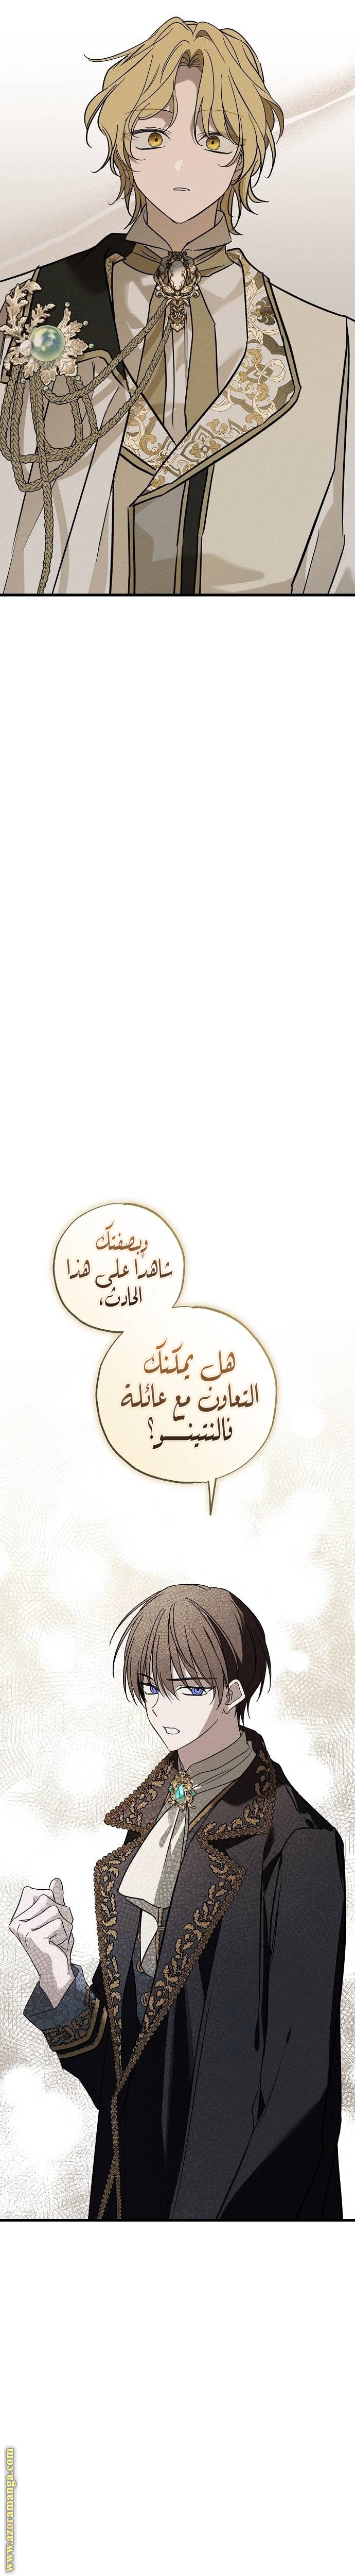 وبصفتك
شاهدًا على هذا
الحادث،
هل يمكنك
التعاون مع عائلة
فالنتينــــو؟
www.azoramanga.com